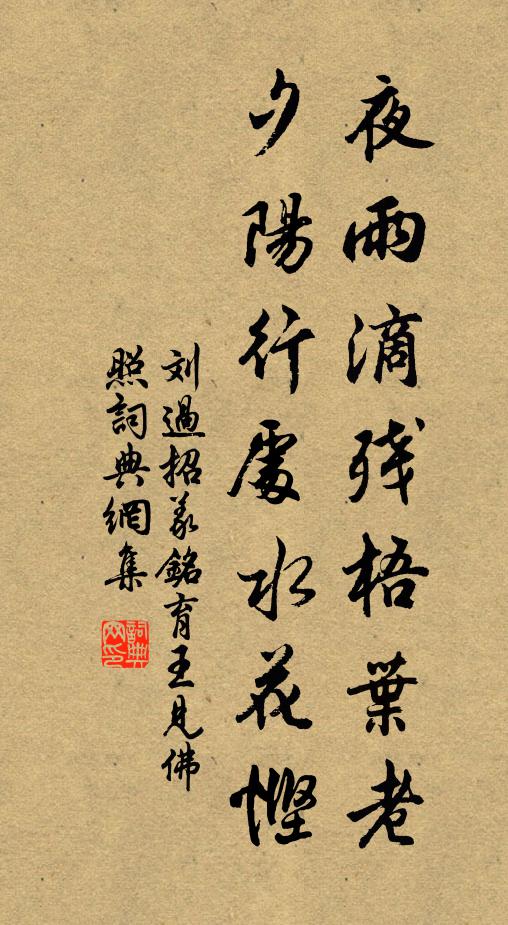 夜雨滴残梧葉老
夕陽行處水花慳
刘過招義銘育王見佛
照詞典網集
詞典
网印